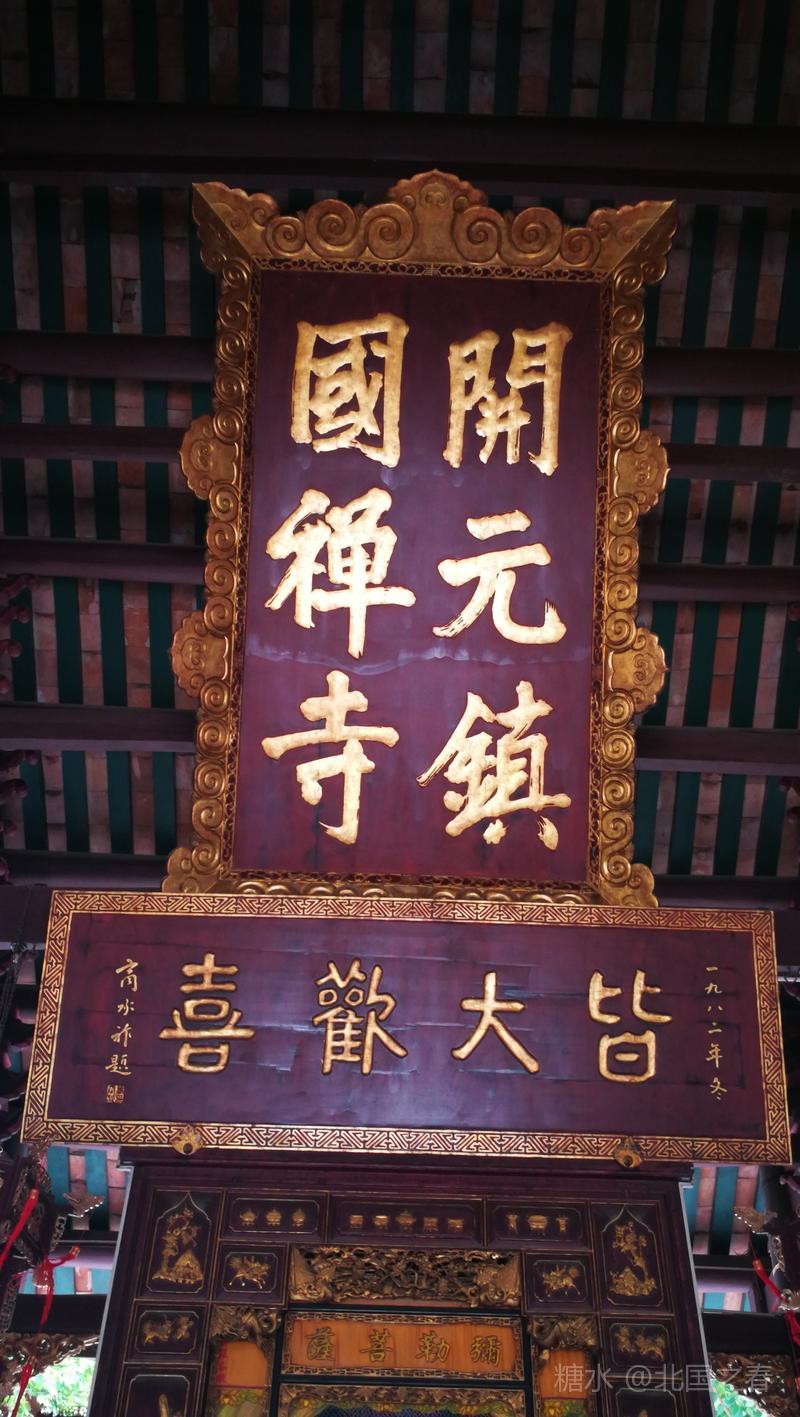 開元鎮
國禪寺
一九八二年冬
皆大歡喜
商承祚題
彌勒菩薩
糖水 @北国之春